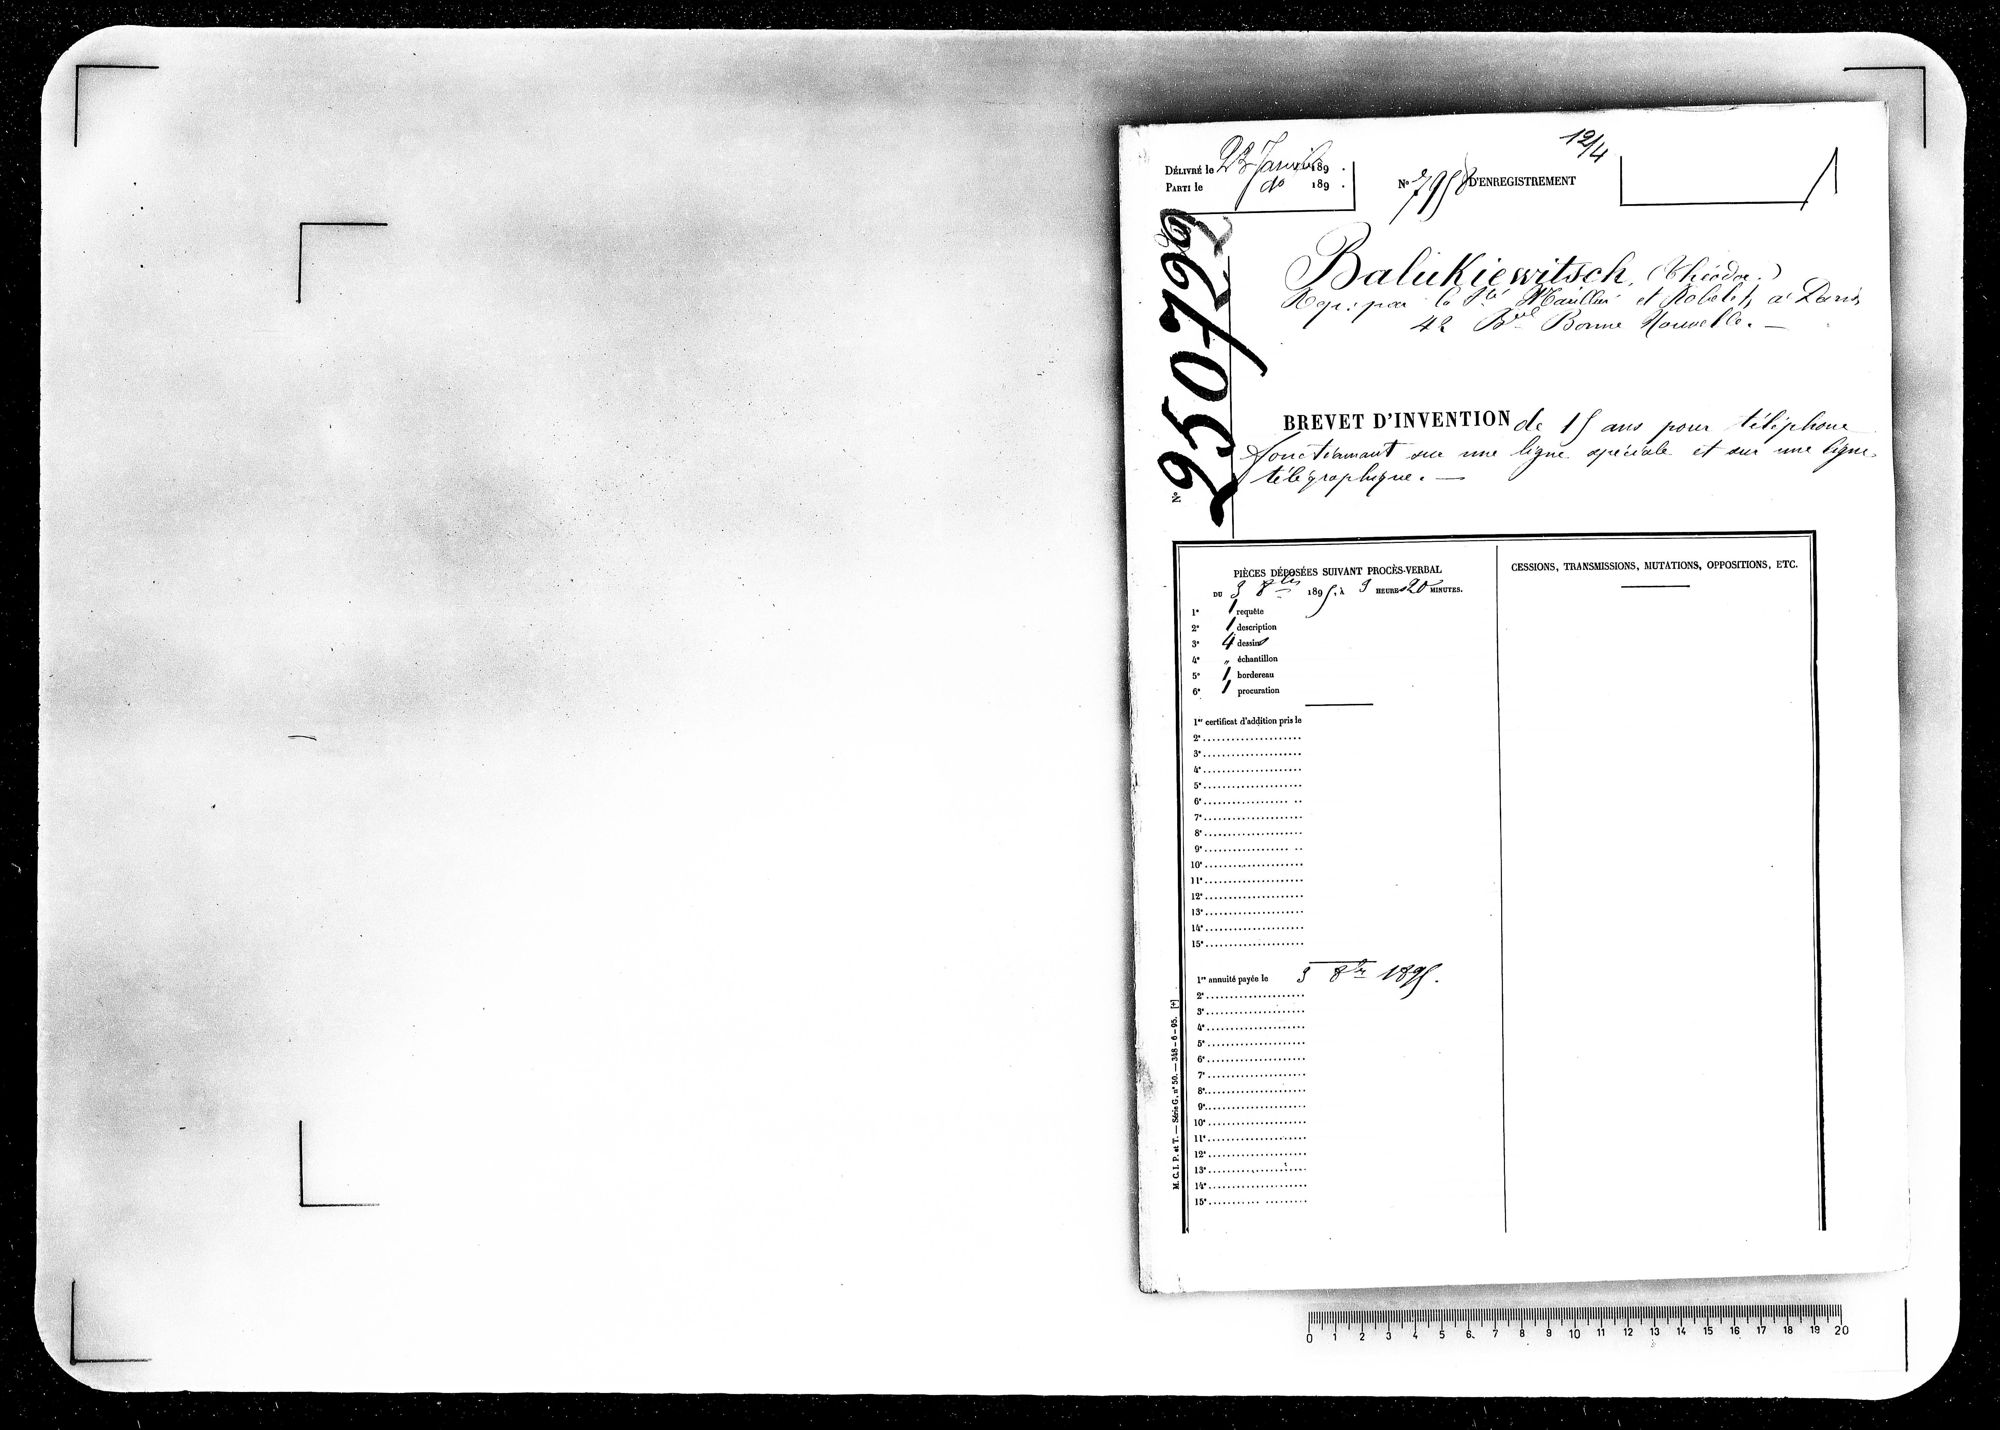 12/4
DÉLIVRÉ le 23 Janvier 189 .
PARTI le do 189 .
N° 7958 D'ENREGISTREMENT
N° 250729
Balukiewitsch, (Théodor.)
Rep: par la Sté Marillier et Robelet, à Paris,
42 Bd Bonne Nouvelle. —
BREVET D'INVENTION de 15 ans pour téléphone
fonctionnant sur une ligne spéciale et sur une ligne
télégraphique. —
PIÈCES DÉPOSÉES SUIVANT PROCÈS-VERBAL
DU 3 8bre 1895, À 3 HEURES 20 MINUTES.
1° 1 requête
2° 1 description
3° 4 dessins
4° „ échantillon
5° 1 bordereau
6° 1 procuration
1er certificat d'addition pris le
2e
3e
4e
5e
6e
7e
8e
9e
10e
11e
12e
13e
14e
15e
1re annuité payée le 3 8bre 1895.
2e
3e
4e
5e
6e
7e
8e
9e
10e
11e
12e
13e
14e
15e
CESSIONS, TRANSMISSIONS, MUTATIONS, OPPOSITIONS, ETC.
M. C. I. P. et T. — Série G, n° 50. — 348-6-95. [+]
0 1 2 3 4 5 6 7 8 9 10 11 12 13 14 15 16 17 18 19 20